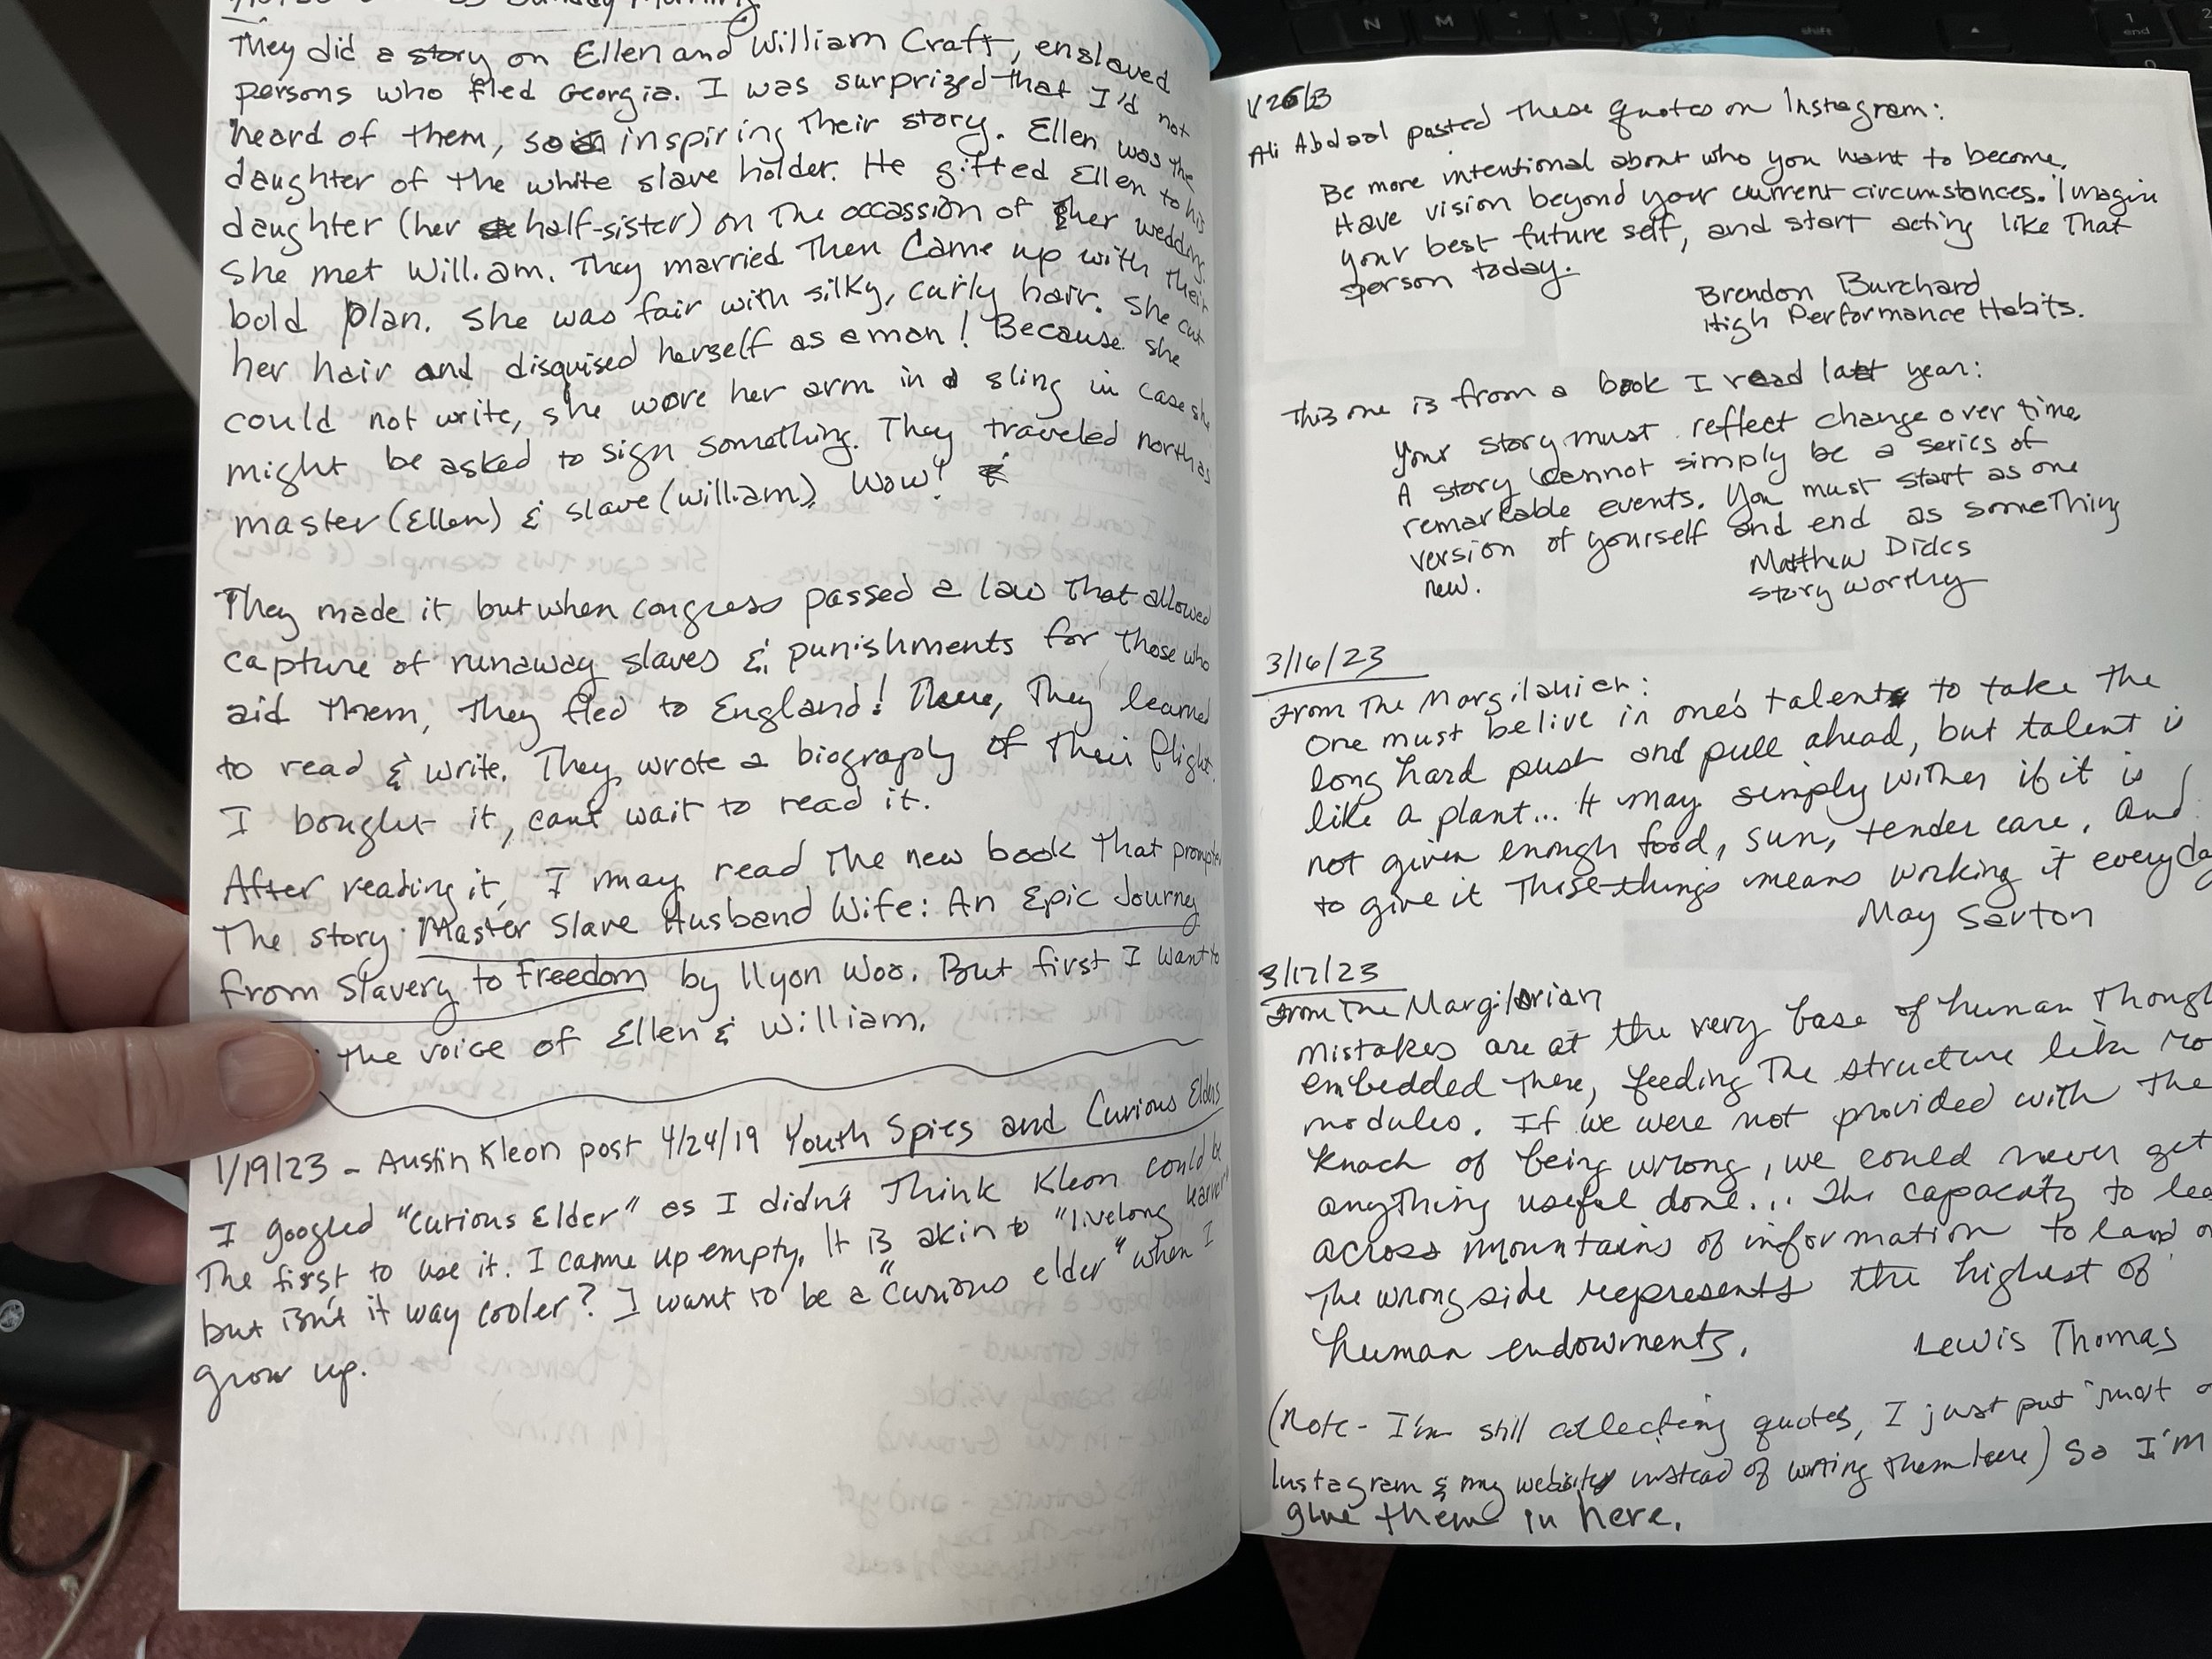 Sunday Morning
They did a story on Ellen and William Craft, enslaved
persons who fled Georgia. I was surprized that I'd not
heard of them, so inspiring their story. Ellen was the
daughter of the white slave holder. He gifted Ellen to his
daughter (her half-sister) on the occassion of her wedding
She met William. They married then came up with their
bold plan. She was fair with silky, curly hair. She cut
her hair and disguised herself as a man! Because she
could not write, she wore her arm in a sling in case she
might be asked to sign something. They traveled north as
master (Ellen) & slave (William). Wow!
They made it but when congress passed a law that allowed
capture of runaway slaves & punishments for those who
aid them, they fled to England! There, they learned
to read & write. They wrote a biography of their flight.
I bought it, cant wait to read it.
After reading it, I may read the new book that prompted
the story: Master Slave Husband Wife: An Epic Journey
from Slavery to Freedom by Ilyon Woo. But first I want to
the voice of Ellen & William.
1/19/23 - Austin Kleon post 4/24/19 Youth Spies and Curious Elders
I googled "Curious Elder" as I didn't think Kleon could be
the first to use it. I came up empty. It is akin to "livelong learner"
but isn't it way cooler? I want to be a "curious elder" when I
grow up.
1/26/23
Ali Abdaal posted these quotes on Instagram:
Be more intentional about who you want to become.
Have vision beyond your current circumstances. Imagin
your best future self, and start acting like that
person today.
Brendon Burchard
High Performance Habits.
This one is from a book I read last year:
Your story must reflect change over time.
A story cannot simply be a series of
remarkable events. You must start as one
version of yourself and end as something
new.
Matthew Dicks
Storyworthy
3/16/23
From The Marginalian:
One must belive in one's talent to take the
long hard push and pull ahead, but talent is
like a plant... It may simply wither if it is
not given enough food, sun, tender care. And
to give it those things means working it everyday
May Sarton
3/17/23
From The Marginalian
Mistakes are at the very base of human thought
embedded there, feeding the structure like
nodules. If we were not provided with the
knack of being wrong, we could never get
anything useful done... The capacaty to
across mountains of information to land
the wrong side represents the highest of
human endowments.
Lewis Thomas
(Note - I'm still collecting quotes, I just put most
Instagram & my website instead of writing them here) So I'm
glue them in here.